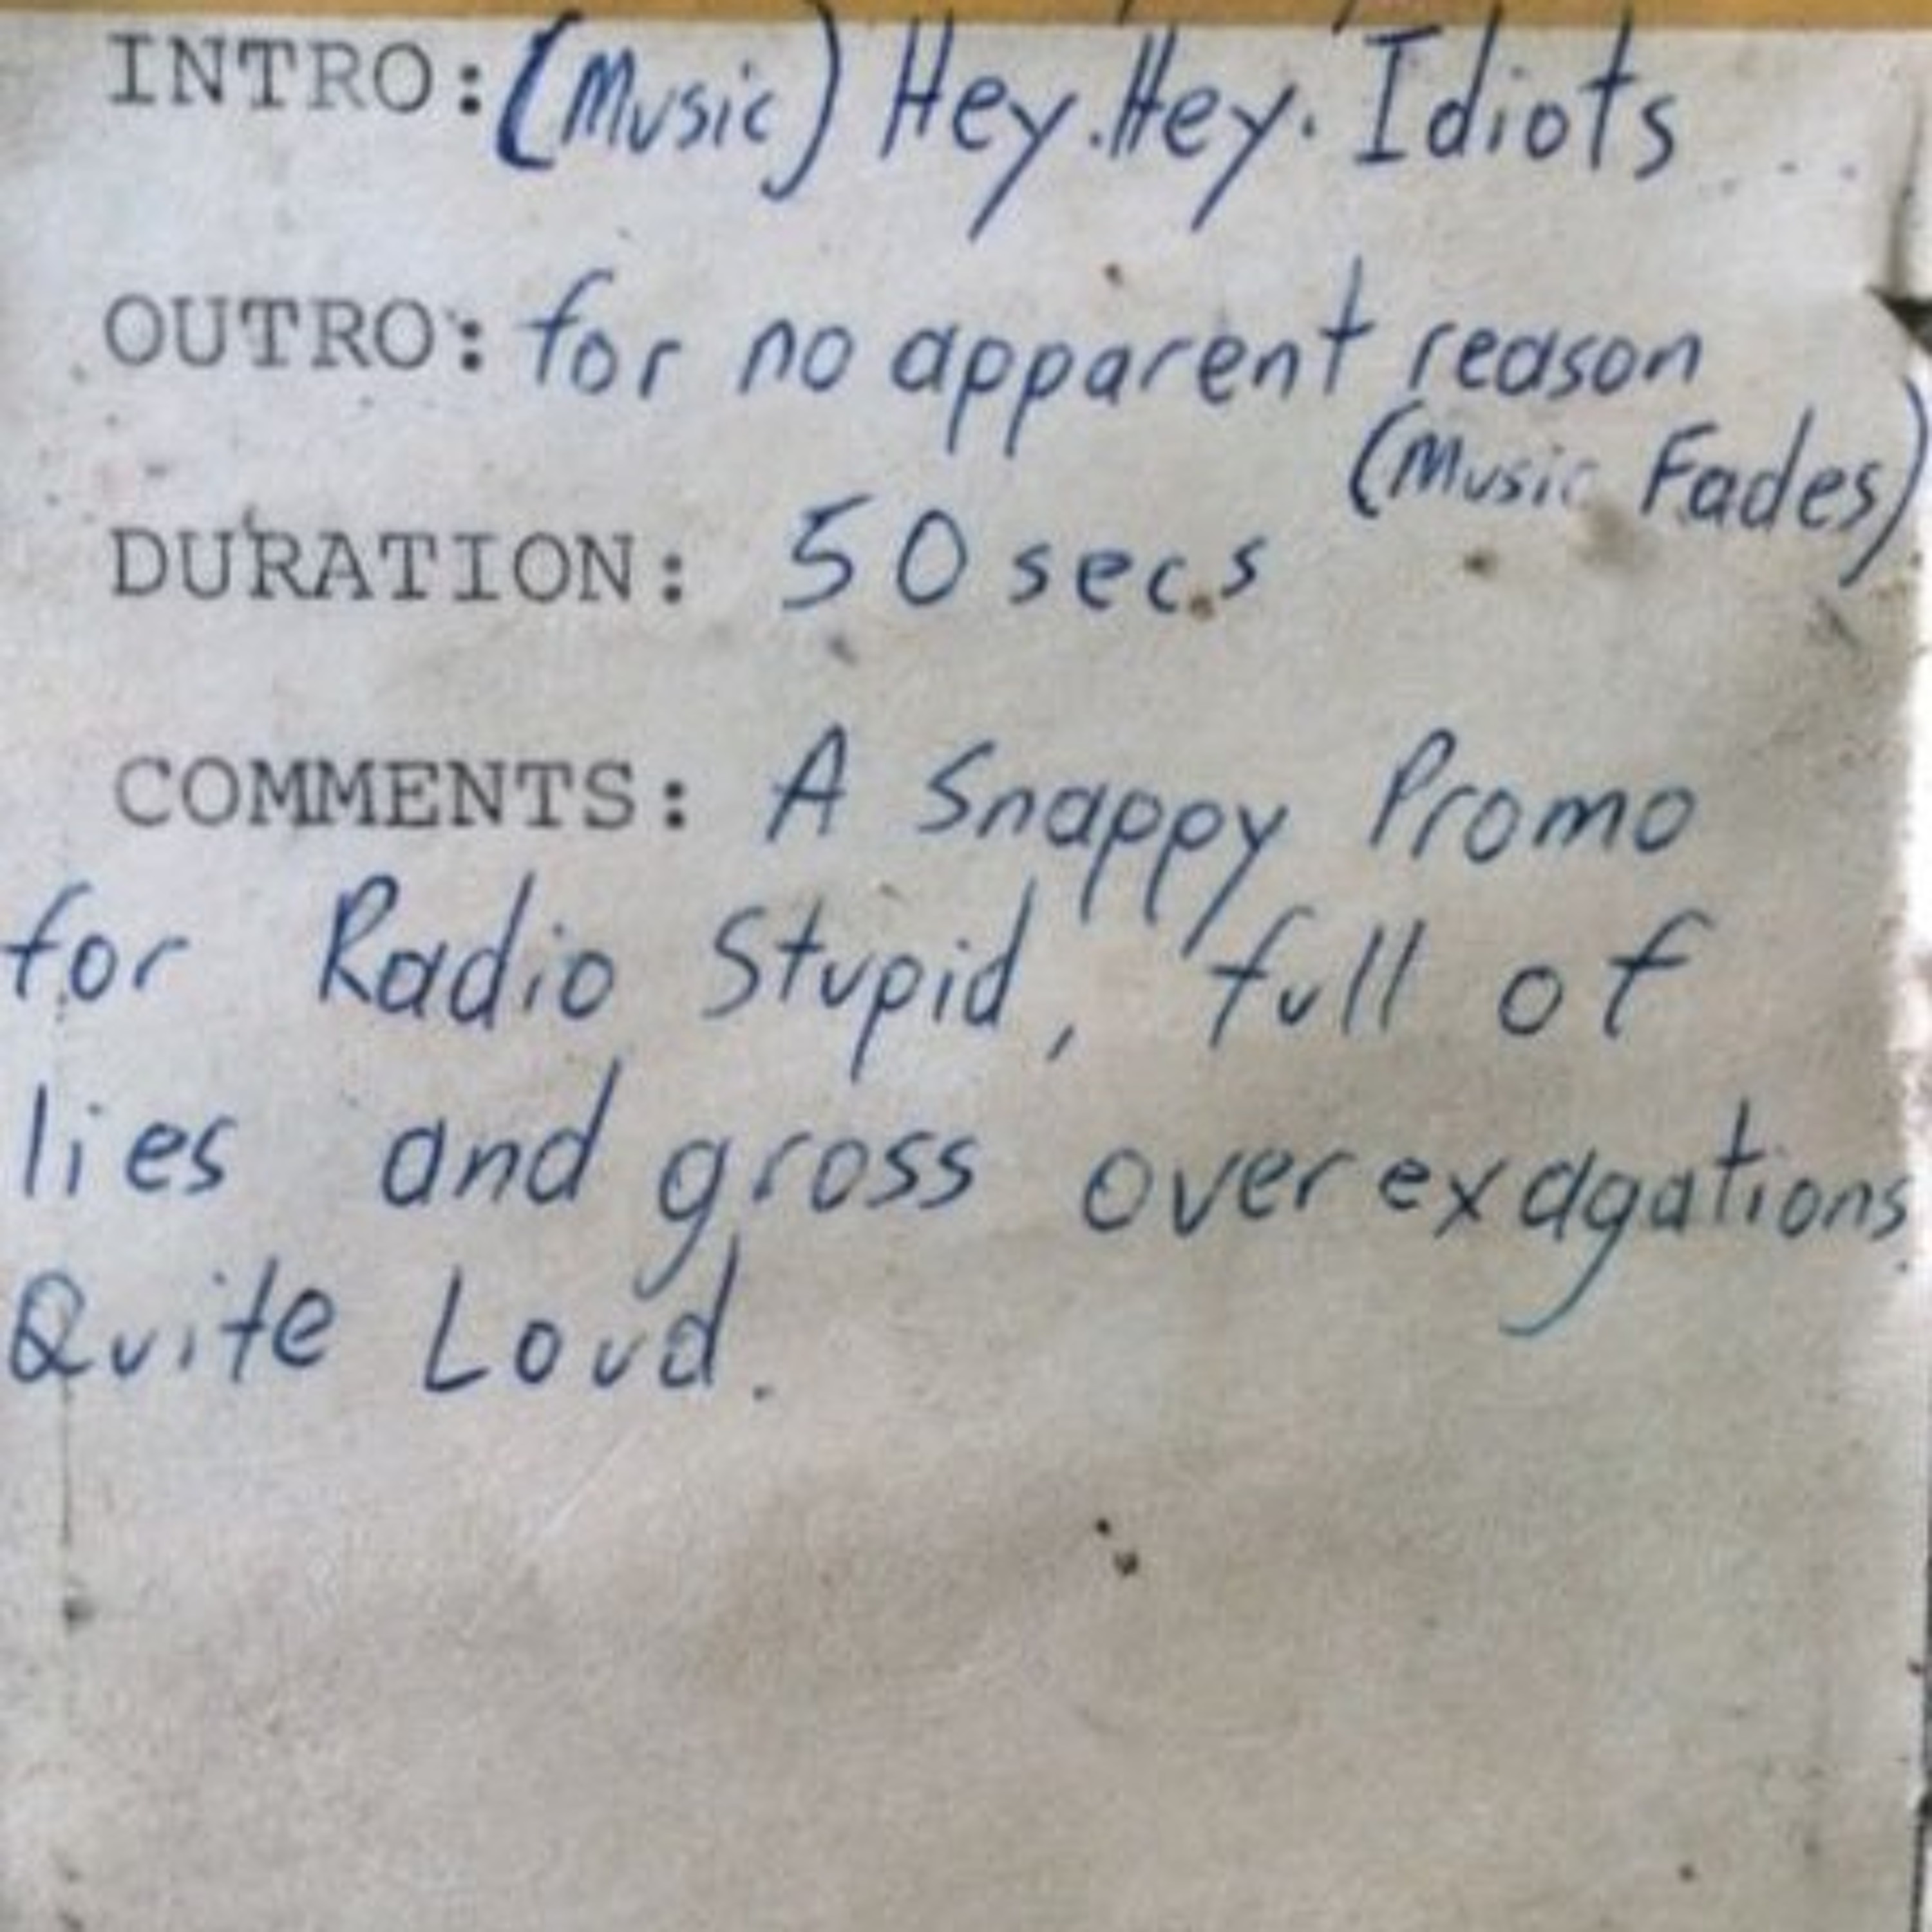 INTRO: (Music) Hey. Hey. Idiots ...
OUTRO: for no apparent reason
(Music Fades)
DURATION: 50 secs
COMMENTS: A Snappy Promo
for Radio Stupid, full of
lies and gross over exagations
Quite Loud.